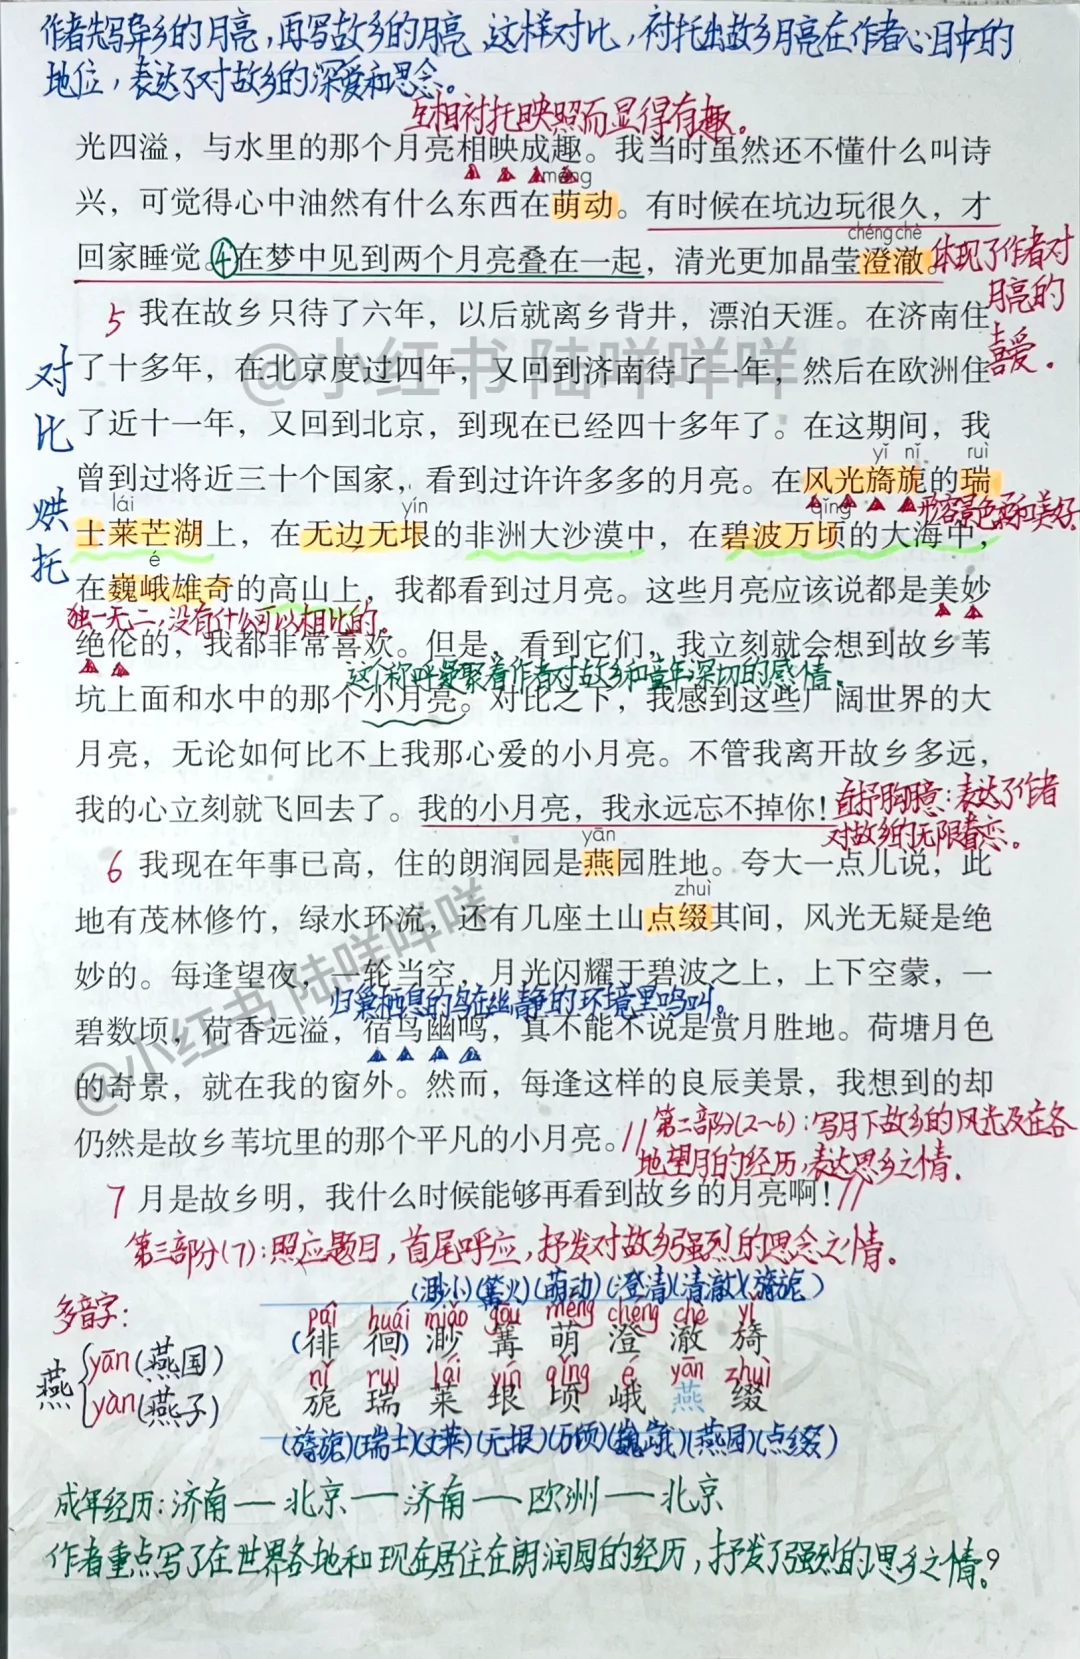 作者先写异乡的月亮，再写故乡的月亮，这样对比，衬托出故乡月亮在作者心目中的
地位，表达了对故乡的深爱和思念。
互相衬托映照而显得有趣。
光四溢，与水里的那个月亮相映成趣。我当时虽然还不懂什么叫诗
méng
兴，可觉得心中油然有什么东西在萌动。有时候在坑边玩很久，才
chéng chè
回家睡觉。④在梦中见到两个月亮叠在一起，清光更加晶莹澄澈。
体现了作者对
月亮的
喜爱。
5 我在故乡只待了六年，以后就离乡背井，漂泊天涯。在济南住
了十多年，在北京度过四年，又回到济南待了一年，然后在欧洲住
了近十一年，又回到北京，到现在已经四十多年了。在这期间，我
对比烘托
曾到过将近三十个国家，看到过许许多多的月亮。在风光旖旎的瑞
yǐ nǐ ruì
形容景色柔和美好。
lái yín qǐng
士莱芒湖上，在无边无垠的非洲大沙漠中，在碧波万顷的大海中，
é
在巍峨雄奇的高山上，我都看到过月亮。这些月亮应该说都是美妙
独一无二，没有什么可以相比的。
绝伦的，我都非常喜欢。但是，看到它们，我立刻就会想到故乡苇
这个称呼凝聚着作者对故乡和童年深切的感情。
坑上面和水中的那个小月亮。对比之下，我感到这些广阔世界的大
月亮，无论如何比不上我那心爱的小月亮。不管我离开故乡多远，
我的心立刻就飞回去了。我的小月亮，我永远忘不掉你！
直抒胸臆：表达了作者
对故乡的无限眷恋。
yān
6 我现在年事已高，住的朗润园是燕园胜地。夸大一点儿说，此
zhuì
地有茂林修竹，绿水环流，还有几座土山点缀其间，风光无疑是绝
妙的。每逢望夜，一轮当空，月光闪耀于碧波之上，上下空蒙，一
归巢栖息的鸟在幽静的环境里鸣叫。
碧数顷，荷香远溢，宿鸟幽鸣，真不能不说是赏月胜地。荷塘月色
的奇景，就在我的窗外。然而，每逢这样的良辰美景，我想到的却
仍然是故乡苇坑里的那个平凡的小月亮。//
第二部分(2~6)：写月下故乡的风光及在各
地望月的经历，表达思乡之情。
7 月是故乡明，我什么时候能够再看到故乡的月亮啊！//
第三部分(7)：照应题目，首尾呼应，抒发对故乡强烈的思念之情。
(渺小)(篝火)(萌动)(澄清)(清澈)(旖旎)
多音字：
pái huái miǎo gōu méng chéng chè yǐ
(徘徊)渺篝萌澄澈旖
燕 yān(燕国)
yàn(燕子)
nǐ ruì lái yín qǐng é yān zhuì
旎瑞莱垠顷峨燕缀
(旖旎)(瑞士)(文莱)(无垠)(万顷)(巍峨)(燕国)(点缀)
成年经历：济南—北京—济南—欧洲—北京
作者重点写了在世界各地和现在居住在朗润园的经历，抒发了强烈的思乡之情。
9
@小红书 陆咩咩咩
@小红书 陆咩咩咩